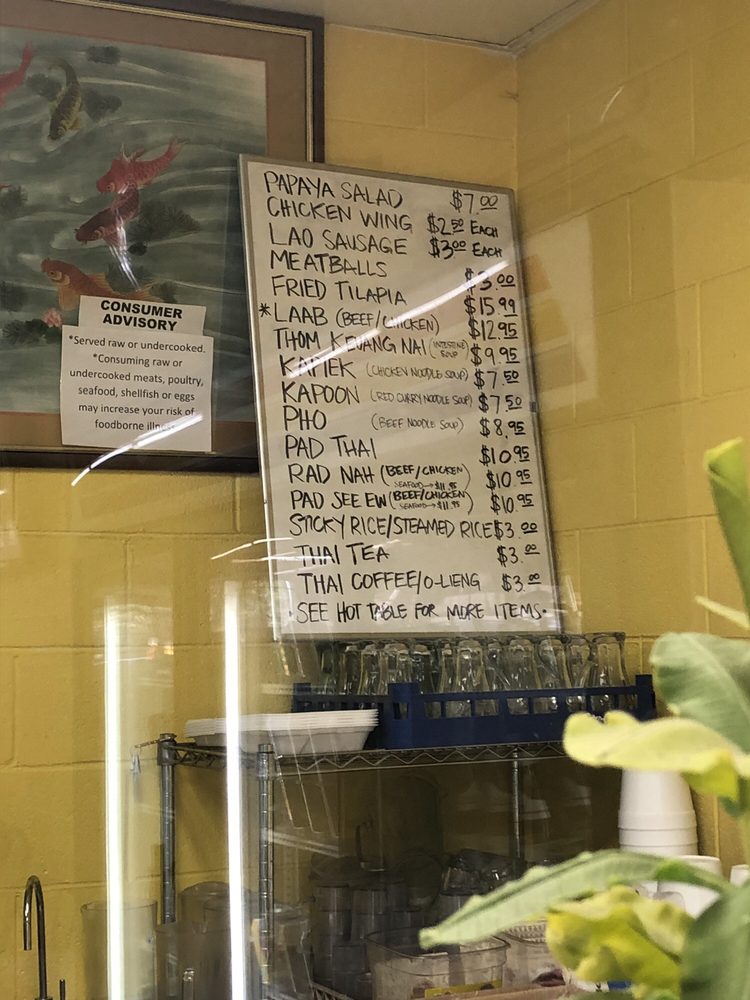 PAPAYA SALAD $7.00
CHICKEN WING $2.50 EACH
LAO SAUSAGE $3.00 EACH
MEATBALLS $3.00
FRIED TILAPIA $15.99
*LAAB (BEEF/CHICKEN) $12.95
THOM KEUANG NAI (INTESTINE SOUP) $9.95
KAPIEK (CHICKEN NOODLE SOUP) $7.50
KAPOON (RED CURRY NOODLE SOUP) $7.50
PHO (BEEF NOODLE SOUP) $8.95
PAD THAI $10.95
RAD NAH (BEEF/CHICKEN SEAFOOD→$11.95) $10.95
PAD SEE EW (BEEF/CHICKEN SEAFOOD→$11.95) $10.95
STICKY RICE/STEAMED RICE $3.00
THAI TEA $3.00
THAI COFFEE/O-LIENG $3.00
•SEE HOT TABLE FOR MORE ITEMS•
CONSUMER
ADVISORY
*Served raw or undercooked.
*Consuming raw or
undercooked meats, poultry,
seafood, shellfish or eggs
may increase your risk of
foodborne illness.